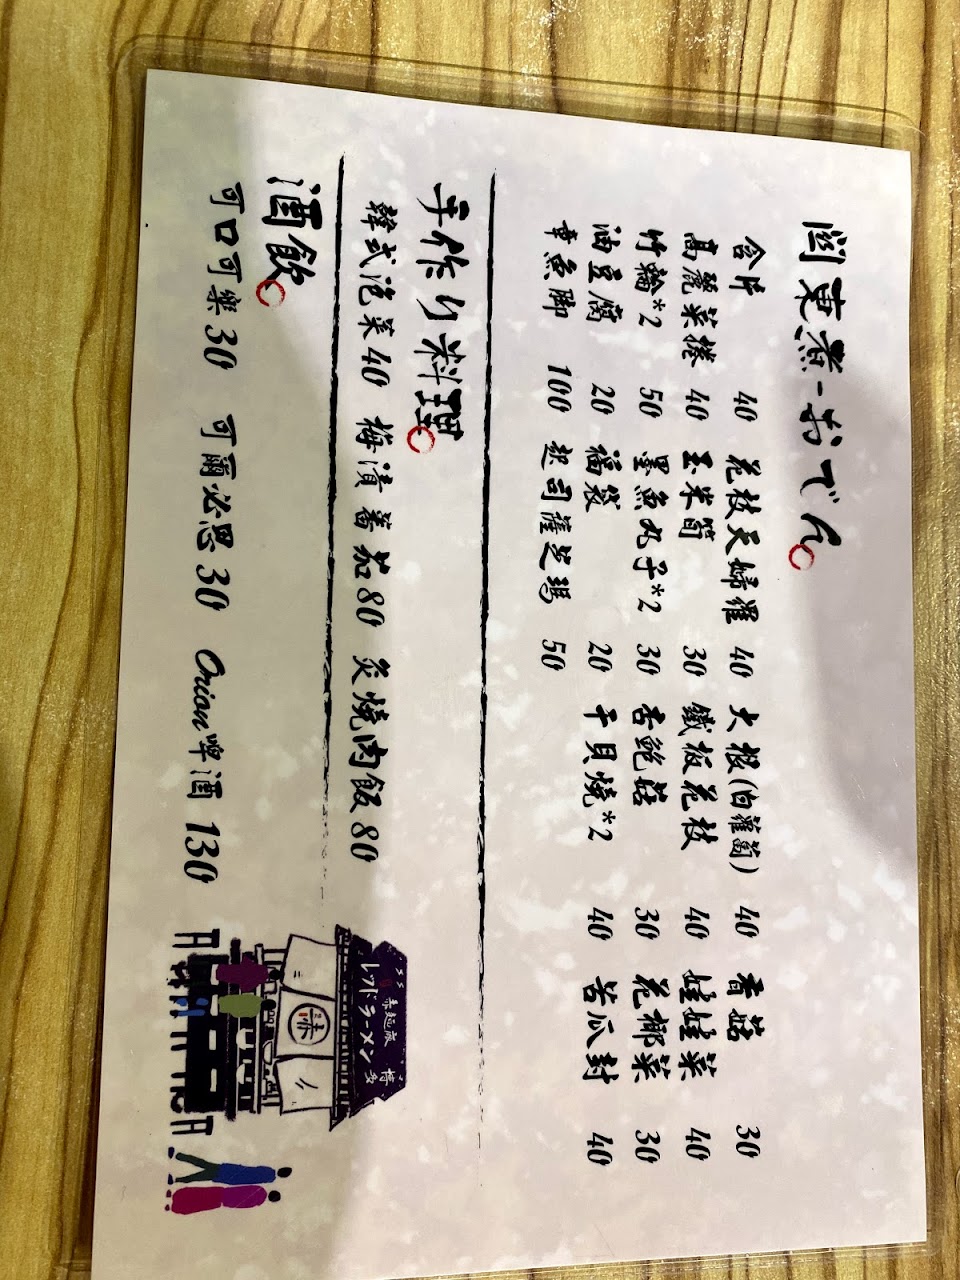 関東煮-おでん
合片 40 花枝天婦羅 40 大根(白蘿蔔) 40 香菇 30
高麗菜捲 40 玉米筍 30 鐵板花枝 40 娃娃菜 40
竹輪*2 50 墨魚丸子*2 30 杏鮑菇 30 花椰菜 30
油豆腐 20 福袋 20 干貝燒*2 40 苦瓜封 40
章魚脚 100 起司薩芝瑪 50
手作り料理
韓式泡菜40 梅漬蕃茄80 炙燒肉飯80
酒飲
可口可樂30 可爾必思30 Orion啤酒130
赤麺廠 博多
レッドラーメン
赤